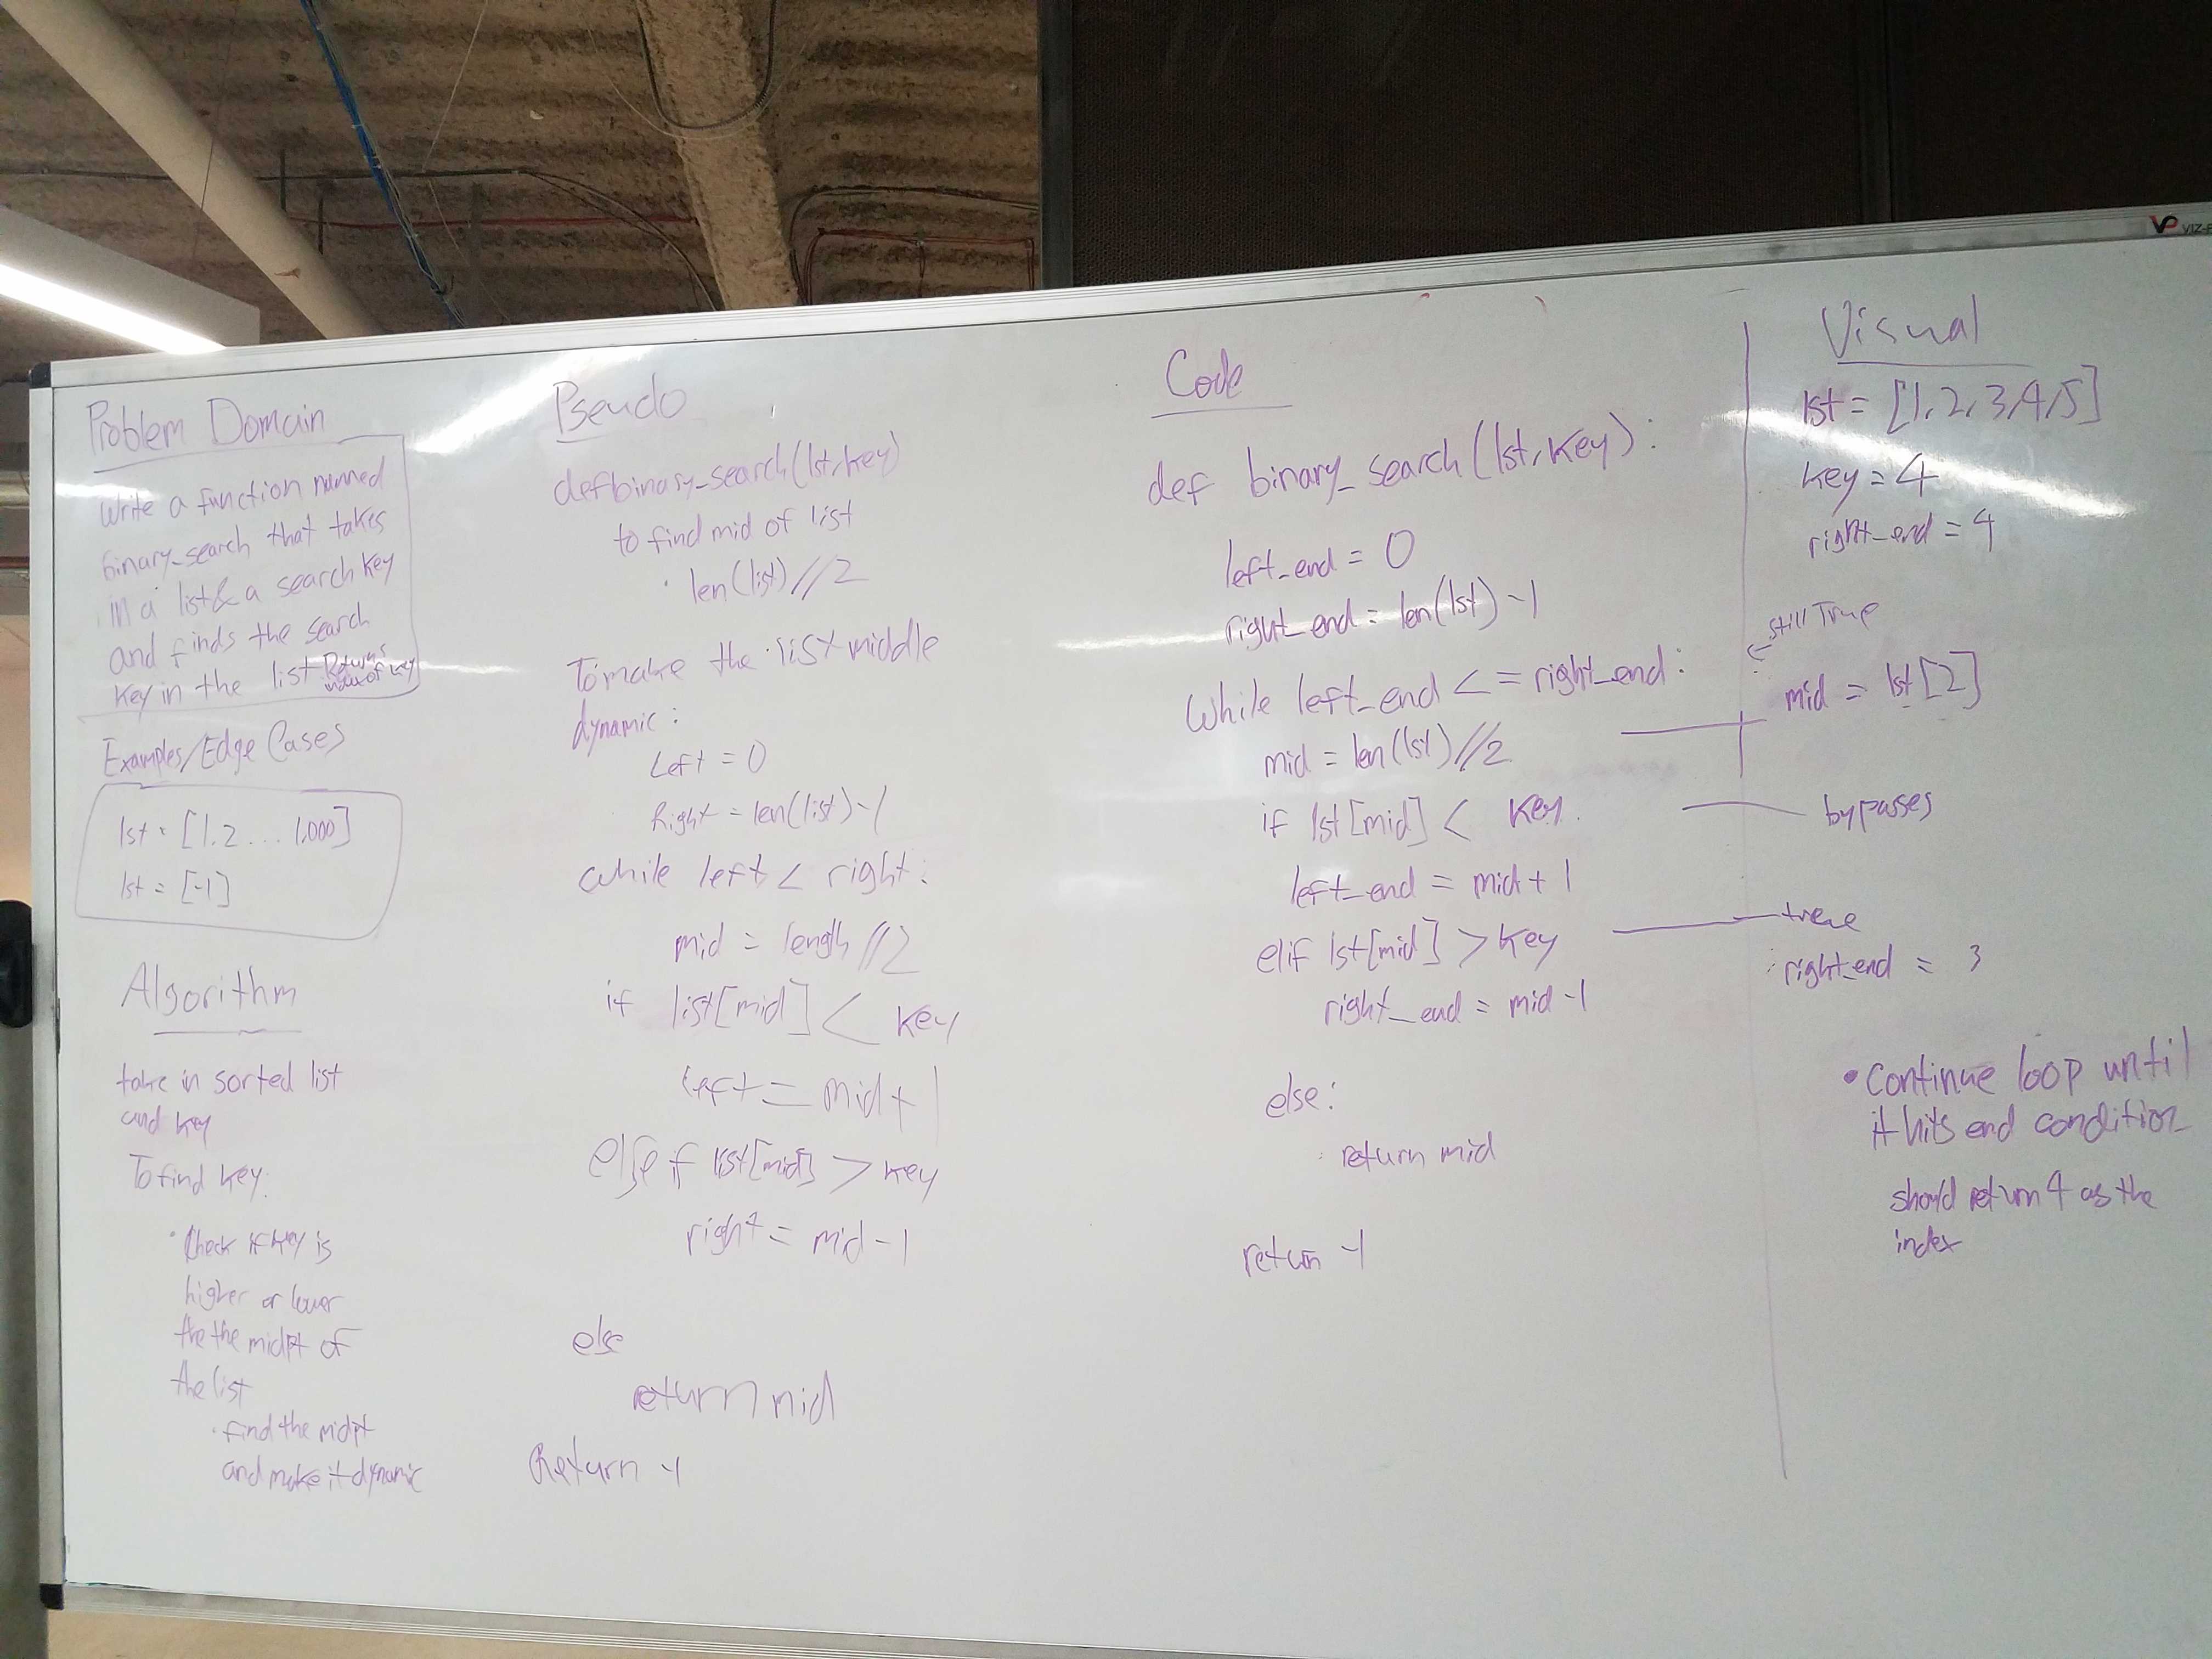 Problem Domain
Write a function named
binary_search that takes
in a list & a search key
and finds the search
key in the list Returns
index of key
Examples/Edge Cases
lst = [1,2 ... 1,000]
lst = [-1]
Algorithm
take in sorted list
and key
To find key:
• Check if key is
higher or lower
the the midpt of
the list
• find the midpt
and make it dynamic
Pseudo
def binary_search(lst, key)
to find mid of list
• len(list)//2
To make the list middle
dynamic:
Left = 0
Right = len(list)-1
while left < right:
mid = length//2
if list[mid] < key
left = mid + 1
else if list[mid] > key
right = mid - 1
else
return mid
Return -1
Code
def binary_search(lst, key):
left_end = 0
right_end = len(lst) - 1
While left_end <= right_end:
mid = len(lst)//2
if lst[mid] < key
left_end = mid + 1
elif lst[mid] > key
right_end = mid - 1
else:
return mid
return -1
Visual
lst = [1,2,3,4,5]
key = 4
right_end = 4
← still True
mid = lst[2]
bypasses
true
right_end = 3
• Continue loop until
it hits end condition
should return 4 as the
index
VIZ-P